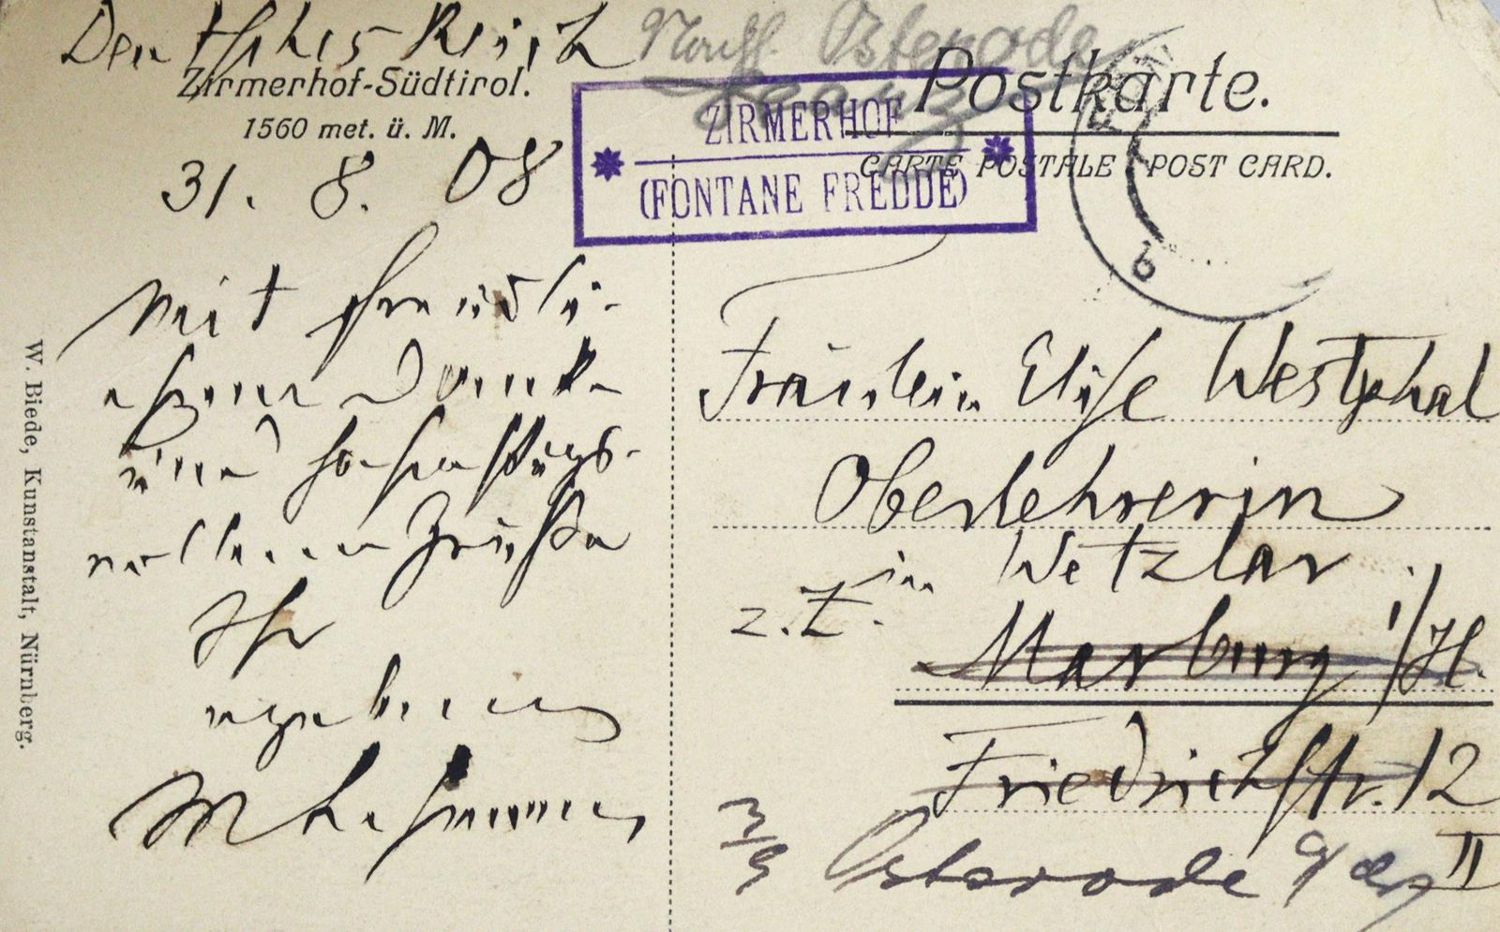 Deutsches Reich
Zirmerhof-Südtirol.
1560 met. ü. M.
31. 8. 08
Mit freundli-
chem Dank
und hochachtungs-
vollen Grüßen
Ihr
ergebener
M Lehmann
W. Biede, Kunstanstalt, Nürnberg.
Osterode
Harz
Postkarte.
CARTE POSTALE POST CARD.
ZIRMERHOF
(FONTANE FREDDE)
b
Fräulein Elise Westphal
Oberlehrerin
in Wetzlar.
z. Z.
Marburg i/H.
Friedrichstr. 12 II
3/9 Osterode a/Harz